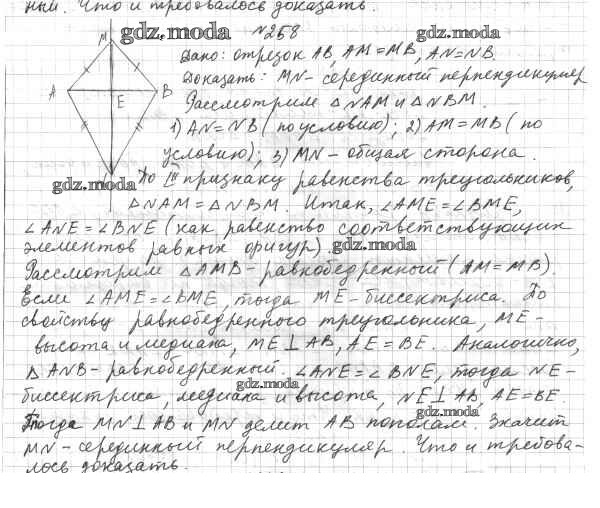 ный. Что и требовалось доказать.
gdz.moda №258 gdz.moda
M
Дано: отрезок AB, AM=MB, AN=NB.
Доказать: MN- серединный перпендикуляр
A E B
Рассмотрим △NAM и △NBM.
1) AN=NB (по условию); 2) AM=MB (по
условию); 3) MN- общая сторона.
gdz.moda По III признаку равенства треугольников,
△NAM=△NBM. Итак, ∠AME=∠BME,
∠ANE=∠BNE (как равенство соответствующих
элементов равных фигур). gdz.moda
Рассмотрим △AMB- равнобедренный (AM=MB).
Если ∠AME=∠BME, тогда ME-биссектриса. По
свойству равнобедренного треугольника, ME-
высота и медиана, ME⊥AB, AE=BE. Аналогично,
△ANB- равнобедренный. ∠ANE=∠BNE, тогда NE-
gdz.moda
биссектриса, медиана и высота, NE⊥AB, AE=BE.
gdz.moda
Тогда MN⊥AB и MN делит AB пополам. Значит
MN-серединный перпендикуляр. Что и требова-
лось доказать.